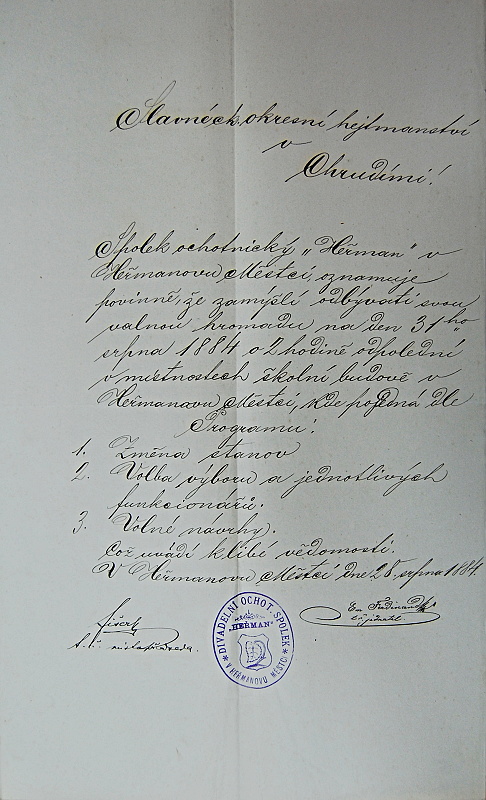 Slavnéck. okresní hejtmanství
v
Chrudimi!
Spolek ochotnický „Heřman" v
Heřmanovu Městci, oznamuje
povinně, že zamýšlí odbývati svou
valnou hromadu na den 31ho
srpna 1884 o 2 hodině odpolední
v místnostech školní budově v
Heřmanavu Městci, kde pojedná dle
Programu:
1. Změna stanov
2. Volba výboru a jednotlivých
funkcionářů.
3. Volné návrhy.
Což uvádí k libé vědomosti.
V Heřmanovu Městci dne 28. srpna 1884.
Em. Ferdinand
t. č. místopředseda.
DIVADELNÍ OCHOT. SPOLEK
"HEŘMAN"
V HEŘMANOVU MĚSTCI